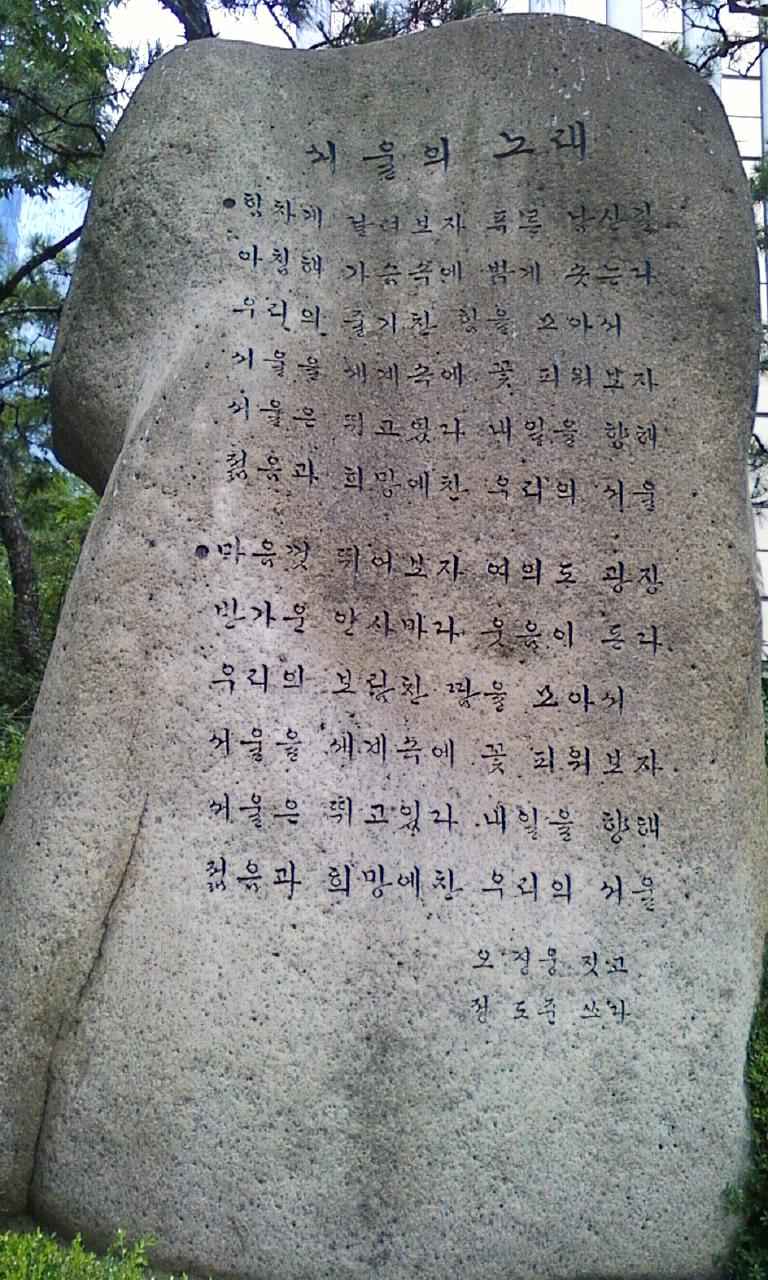 서울의 노래
•힘차게 달려보자 푸른 남산길
아침해 가슴속에 밝게 웃는다
우리의 줄기찬 힘을 쏘아서
서울을 세계속에 꽃 피워보자
서울은 뛰고있다 내일을 향해
젊음과 희망에찬 우리의 서울
•마음껏 뛰어보자 여의도 광장
반가운 인사마다 웃음이 돈다
우리의 보람찬 땀을 쏘아서
서울을 세계속에 꽃 피워보자
서울은 뛰고있다 내일을 향해
젊음과 희망에찬 우리의 서울
오정웅 짓고
정도준 쓰다